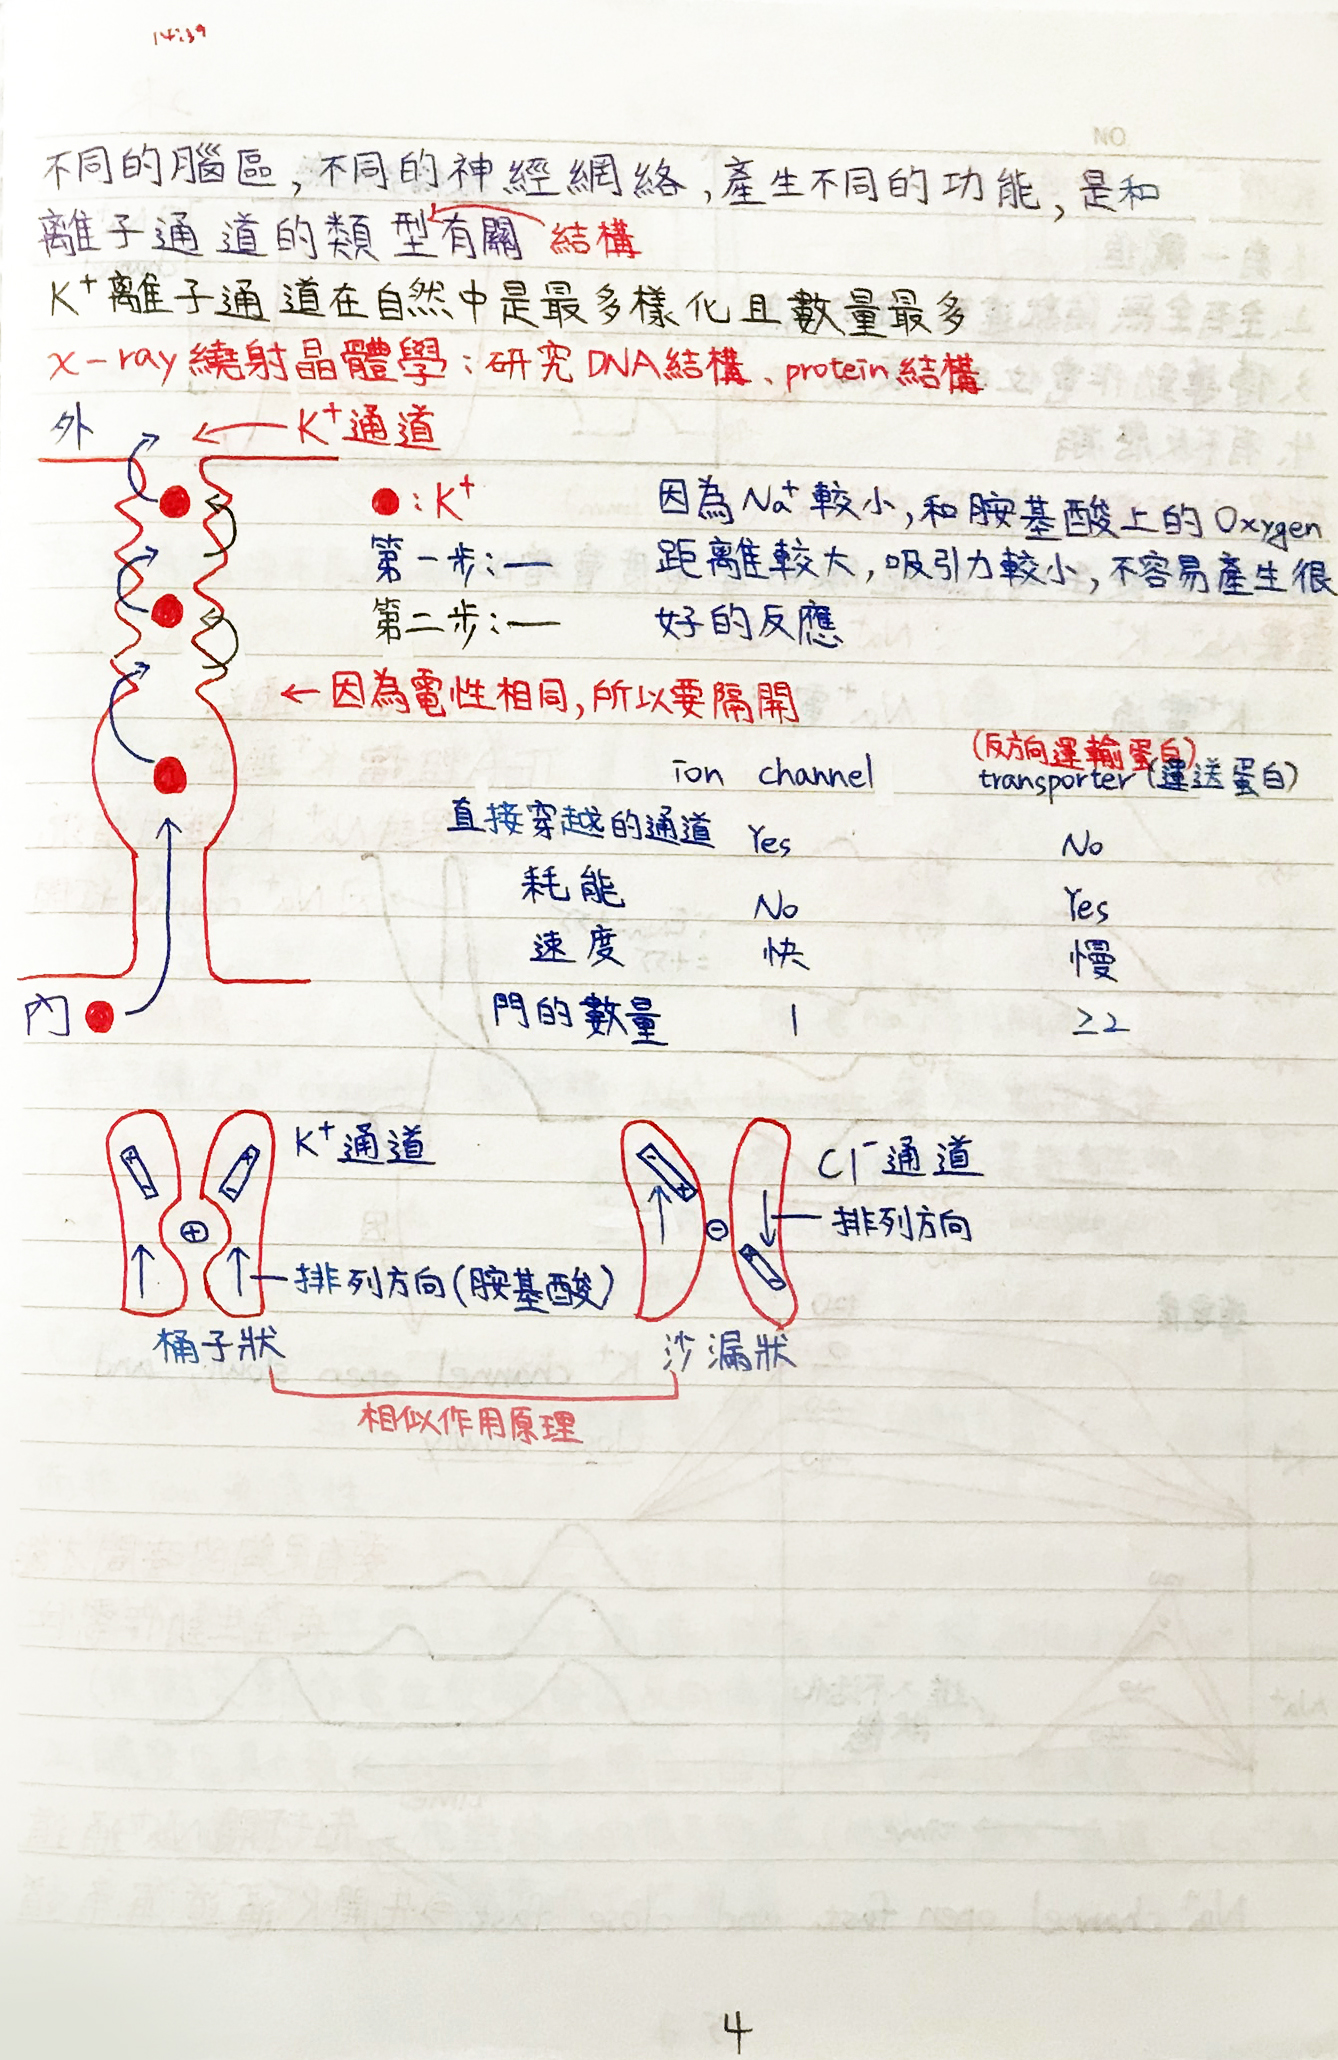 14:39
不同的腦區,不同的神經網絡,產生不同的功能,是和
離子通道的類型有關 結構
K⁺離子通道在自然中是最多樣化且數量最多
x-ray繞射晶體學:研究DNA結構、protein結構
外
K⁺通道
:K⁺
第一步:—
第二步:—
因為Na⁺較小,和胺基酸上的Oxygen
距離較大,吸引力較小,不容易產生很
好的反應
←因為電性相同,所以要隔開
內
(反方向運輸蛋白)
ion channel transporter(運送蛋白)
直接穿越的通道 Yes No
耗能 No Yes
速度 快 慢
門的數量 1 ≥2
K⁺通道
- -
+
排列方向(胺基酸)
桶子狀
Cl⁻通道
- +
-
排列方向
沙漏狀
相似作用原理
4